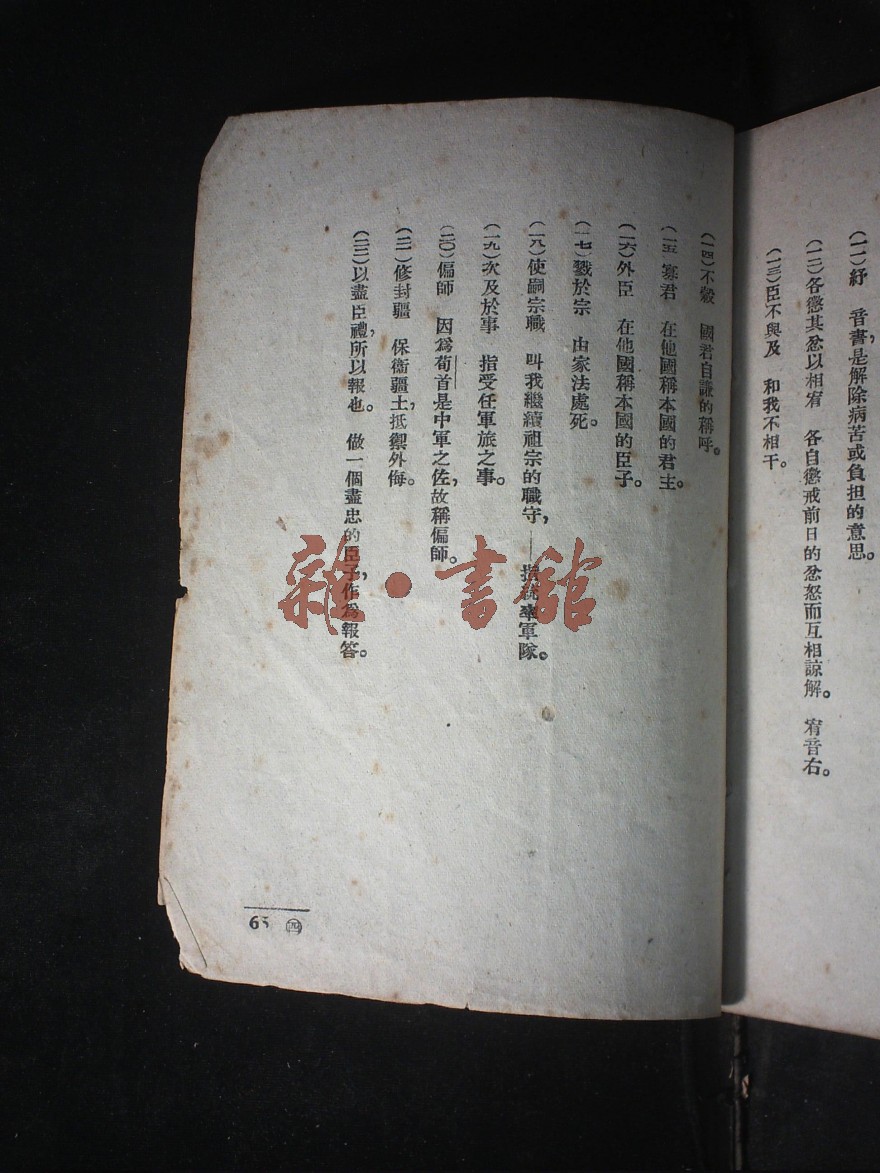 (一一)紓　音書，是解除病苦或負担的意思。
(一二)各懲其忿以相宥　各自懲戒前日的忿怒而互相諒解。　宥音右。
(一三)臣不與及　和我不相干。
(一四)不穀　國君自謙的稱呼。
(一五)寡君　在他國稱本國的君主。
(一六)外臣　在他國稱本國的臣子。
(一七)戮於宗　由家法處死。
(一八)使嗣宗職　叫我繼續祖宗的職守，——指統率軍隊。
(一九)次及於事　指受任軍旅之事。
(二〇)偏師　因爲荀首是中軍之佐，故稱偏師。
(二一)修封疆　保衞疆土，抵禦外侮。
(二二)以盡臣禮，所以報也。　做一個盡忠的臣子，作爲報答。
65 ㊃
雜·書館